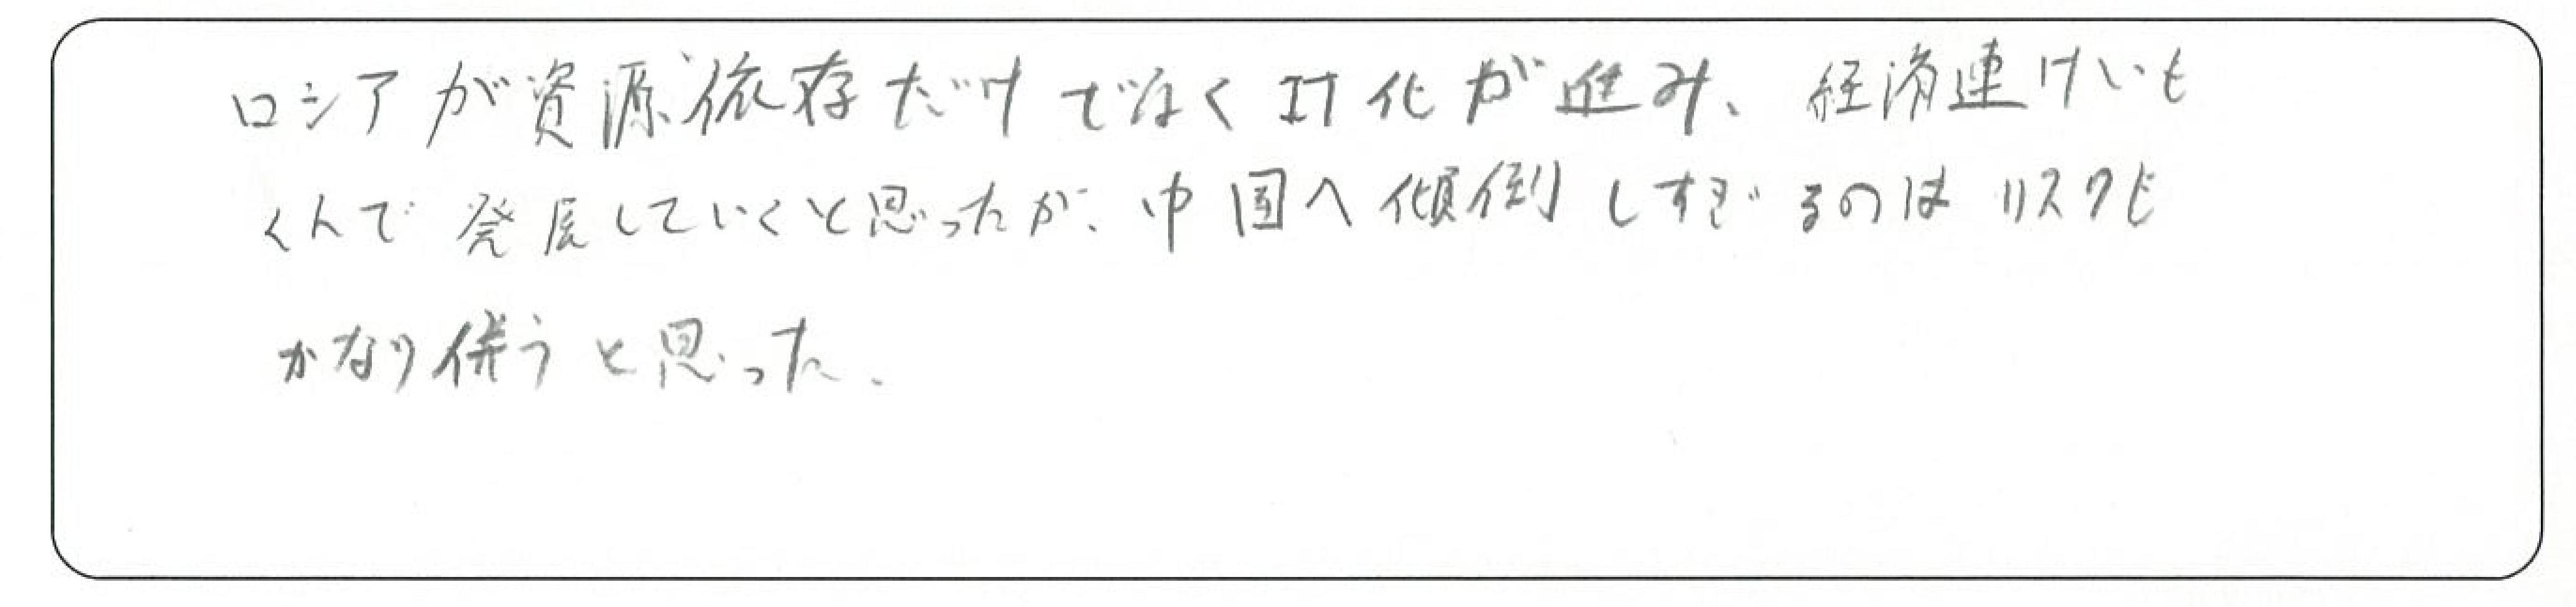 ロシアが資源依存だけでなくIT化が進み、経済連けいも
くんで発展していくと思ったが、中国へ傾倒しすぎるのはリスクも
かなり併うと思った。